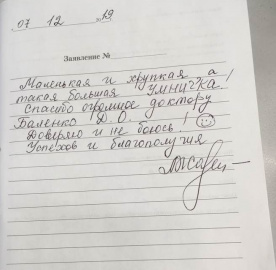 07 12 19
Заявление №
Маленькая и хрупкая, а
такая большая УМНИЧКА!
Спасибо огромное доктору
Баленко Д. О.
Доверяю и не боюсь!
Успехов и благополучия